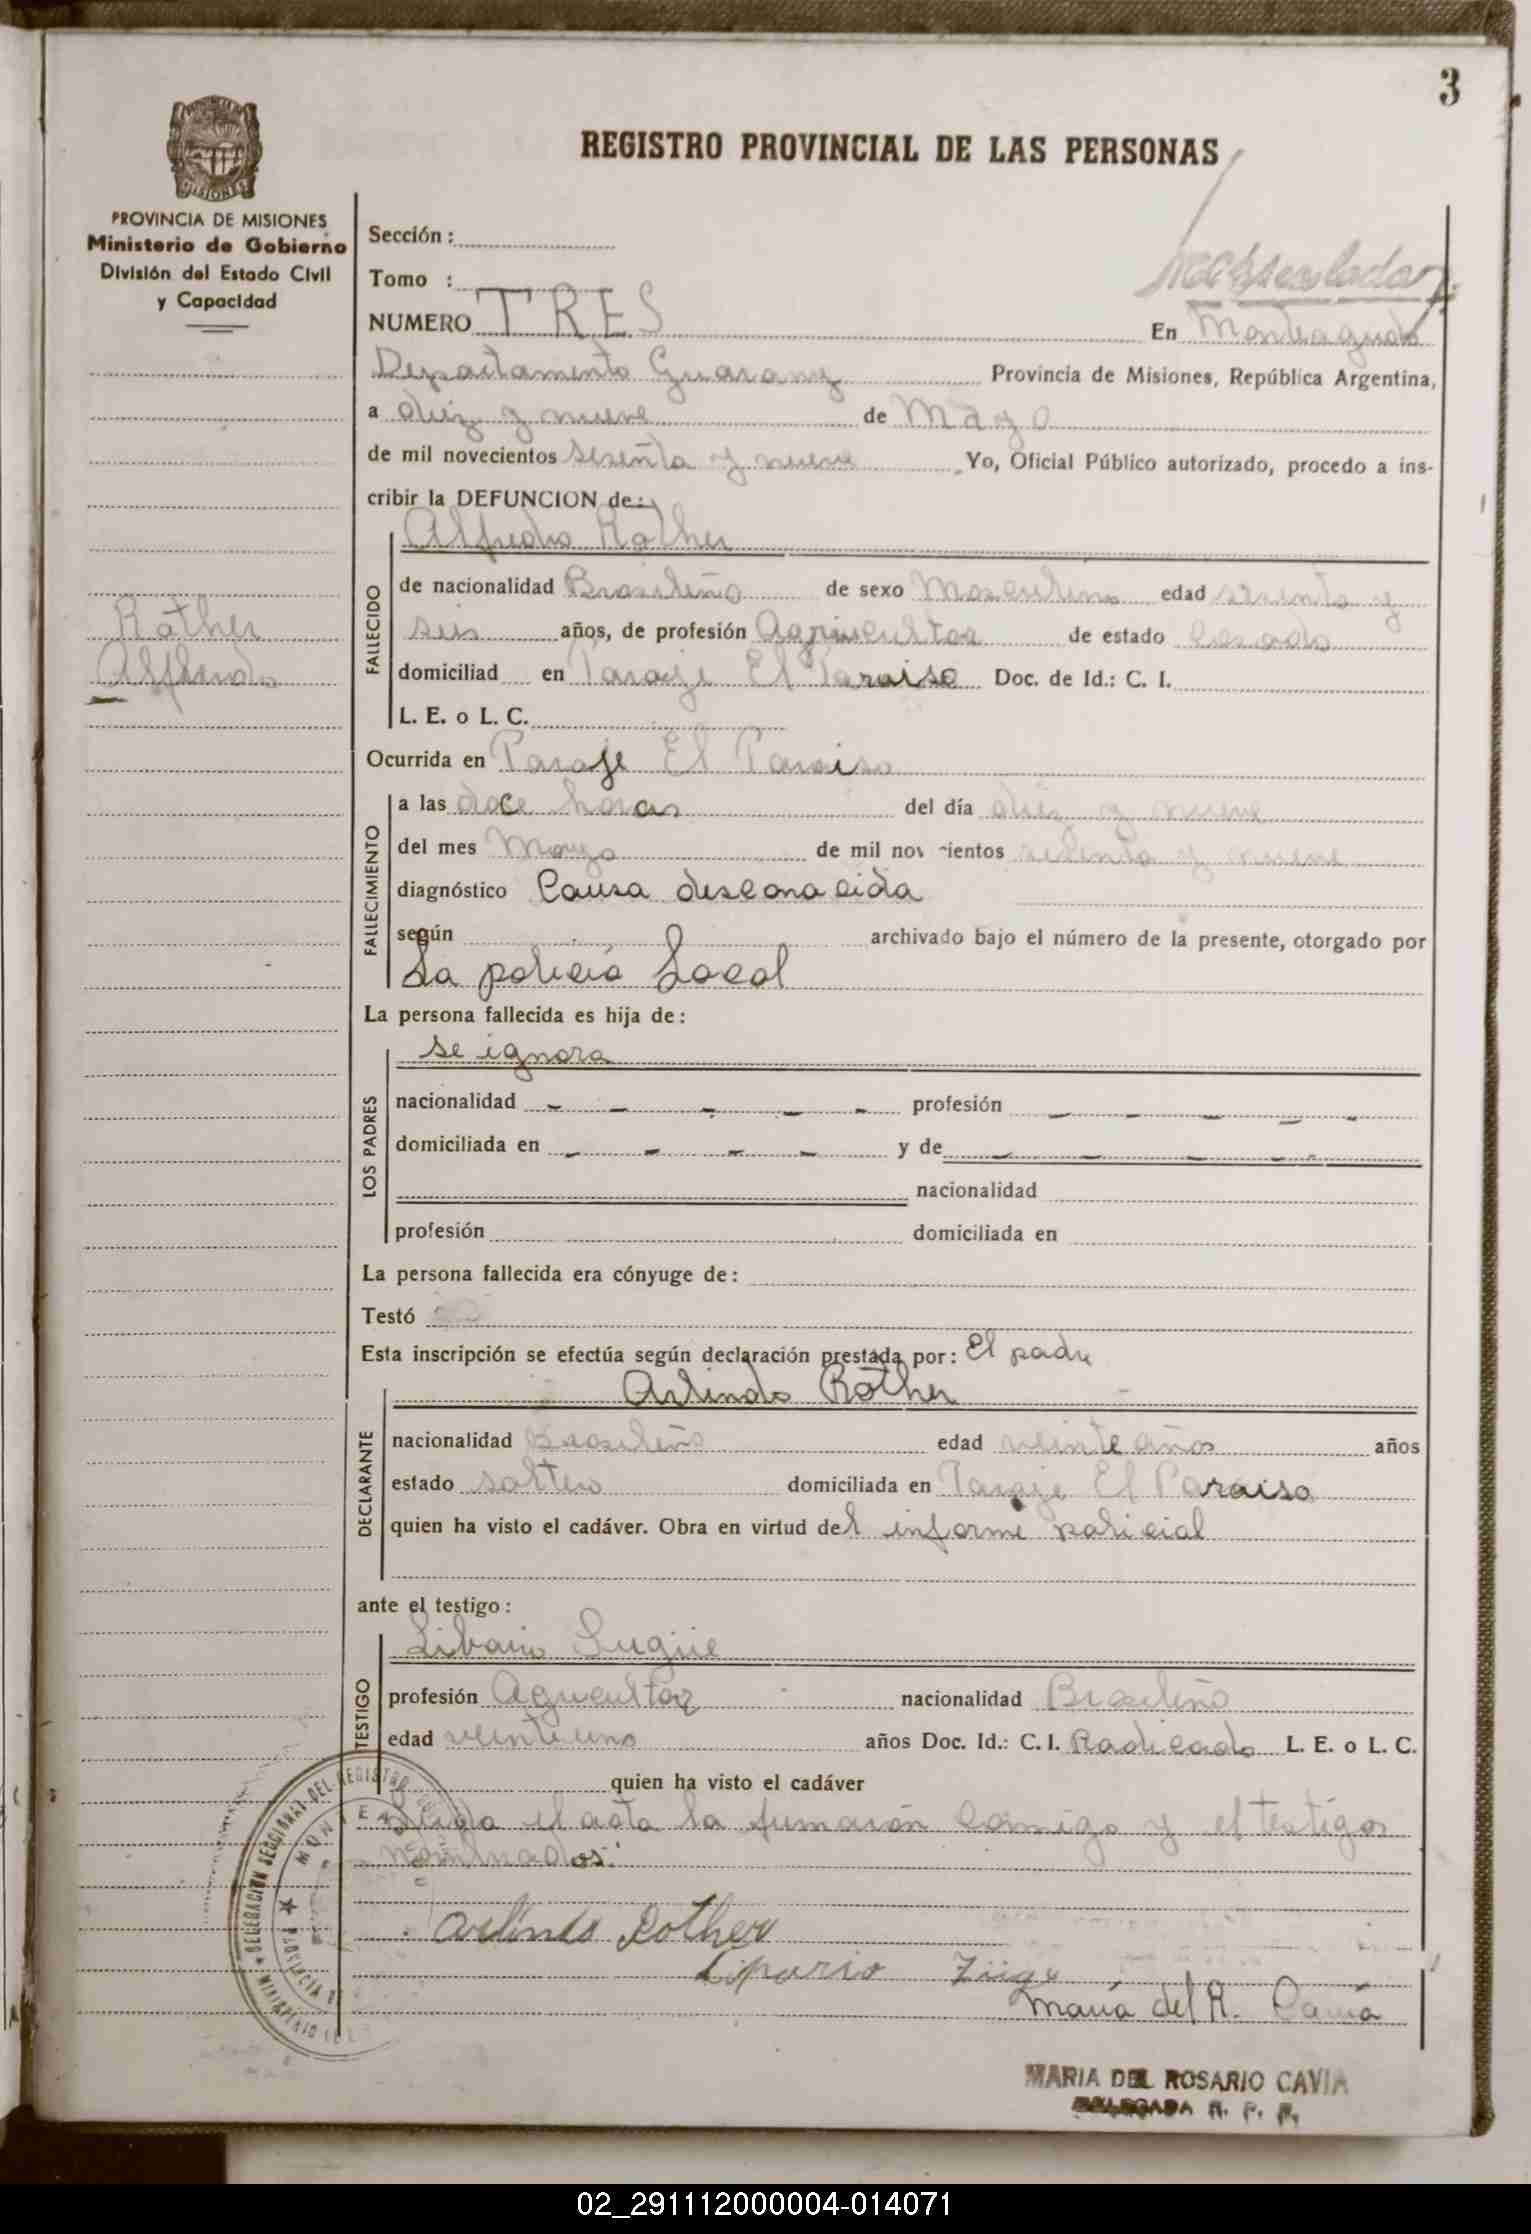 3
REGISTRO PROVINCIAL DE LAS PERSONAS
PROVINCIA DE MISIONES
Ministerio de Gobierno
División del Estado Civil
y Capacidad
Rother
Alfredo
Sección :
Tomo :
NUMERO TRES En Monteagudo
Departamento Guarany Provincia de Misiones, República Argentina,
a diez y nueve de Mayo
de mil novecientos sesenta y nueve Yo, Oficial Público autorizado, procedo a ins-
cribir la DEFUNCION de:
Alfredo Rother
FALLECIDO
de nacionalidad Brasileño de sexo Masculino edad sesenta y
seis años, de profesión Agricultor de estado Casado
domiciliad en Paraje El Paraiso Doc. de Id.: C. I.
L. E. o L. C.
Ocurrida en Paraje El Paraiso
FALLECIMIENTO
a las doce horas del día diez y nueve
del mes Mayo de mil nov cientos sesenta y nueve
diagnóstico Causa desconocida
según archivado bajo el número de la presente, otorgado por
La policia Local
La persona fallecida es hija de:
LOS PADRES
se ignora
nacionalidad - - - - - profesión - - - - -
domiciliada en - - - - y de - - - - -
nacionalidad
profesión domiciliada en
La persona fallecida era cónyuge de:
Testó
Esta inscripción se efectúa según declaración prestada por: El padre
Arlindo Rother
DECLARANTE
nacionalidad Brasileño edad veinte años años
estado soltero domiciliada en Paraje El Paraiso
quien ha visto el cadáver. Obra en virtud del informe policial
ante el testigo:
TESTIGO
profesión Agricultor nacionalidad Brasileño
edad veinte uno años Doc. Id.: C. I. Radicado L. E. o L. C.
quien ha visto el cadáver
Leida el acta la firmaron Conmigo y el testigos
nominados.
Arlindo Rother
Maria del R. Cavia
MARIA DEL ROSARIO CAVIA
DELEGADA R. P. P.
02_291112000004-014071